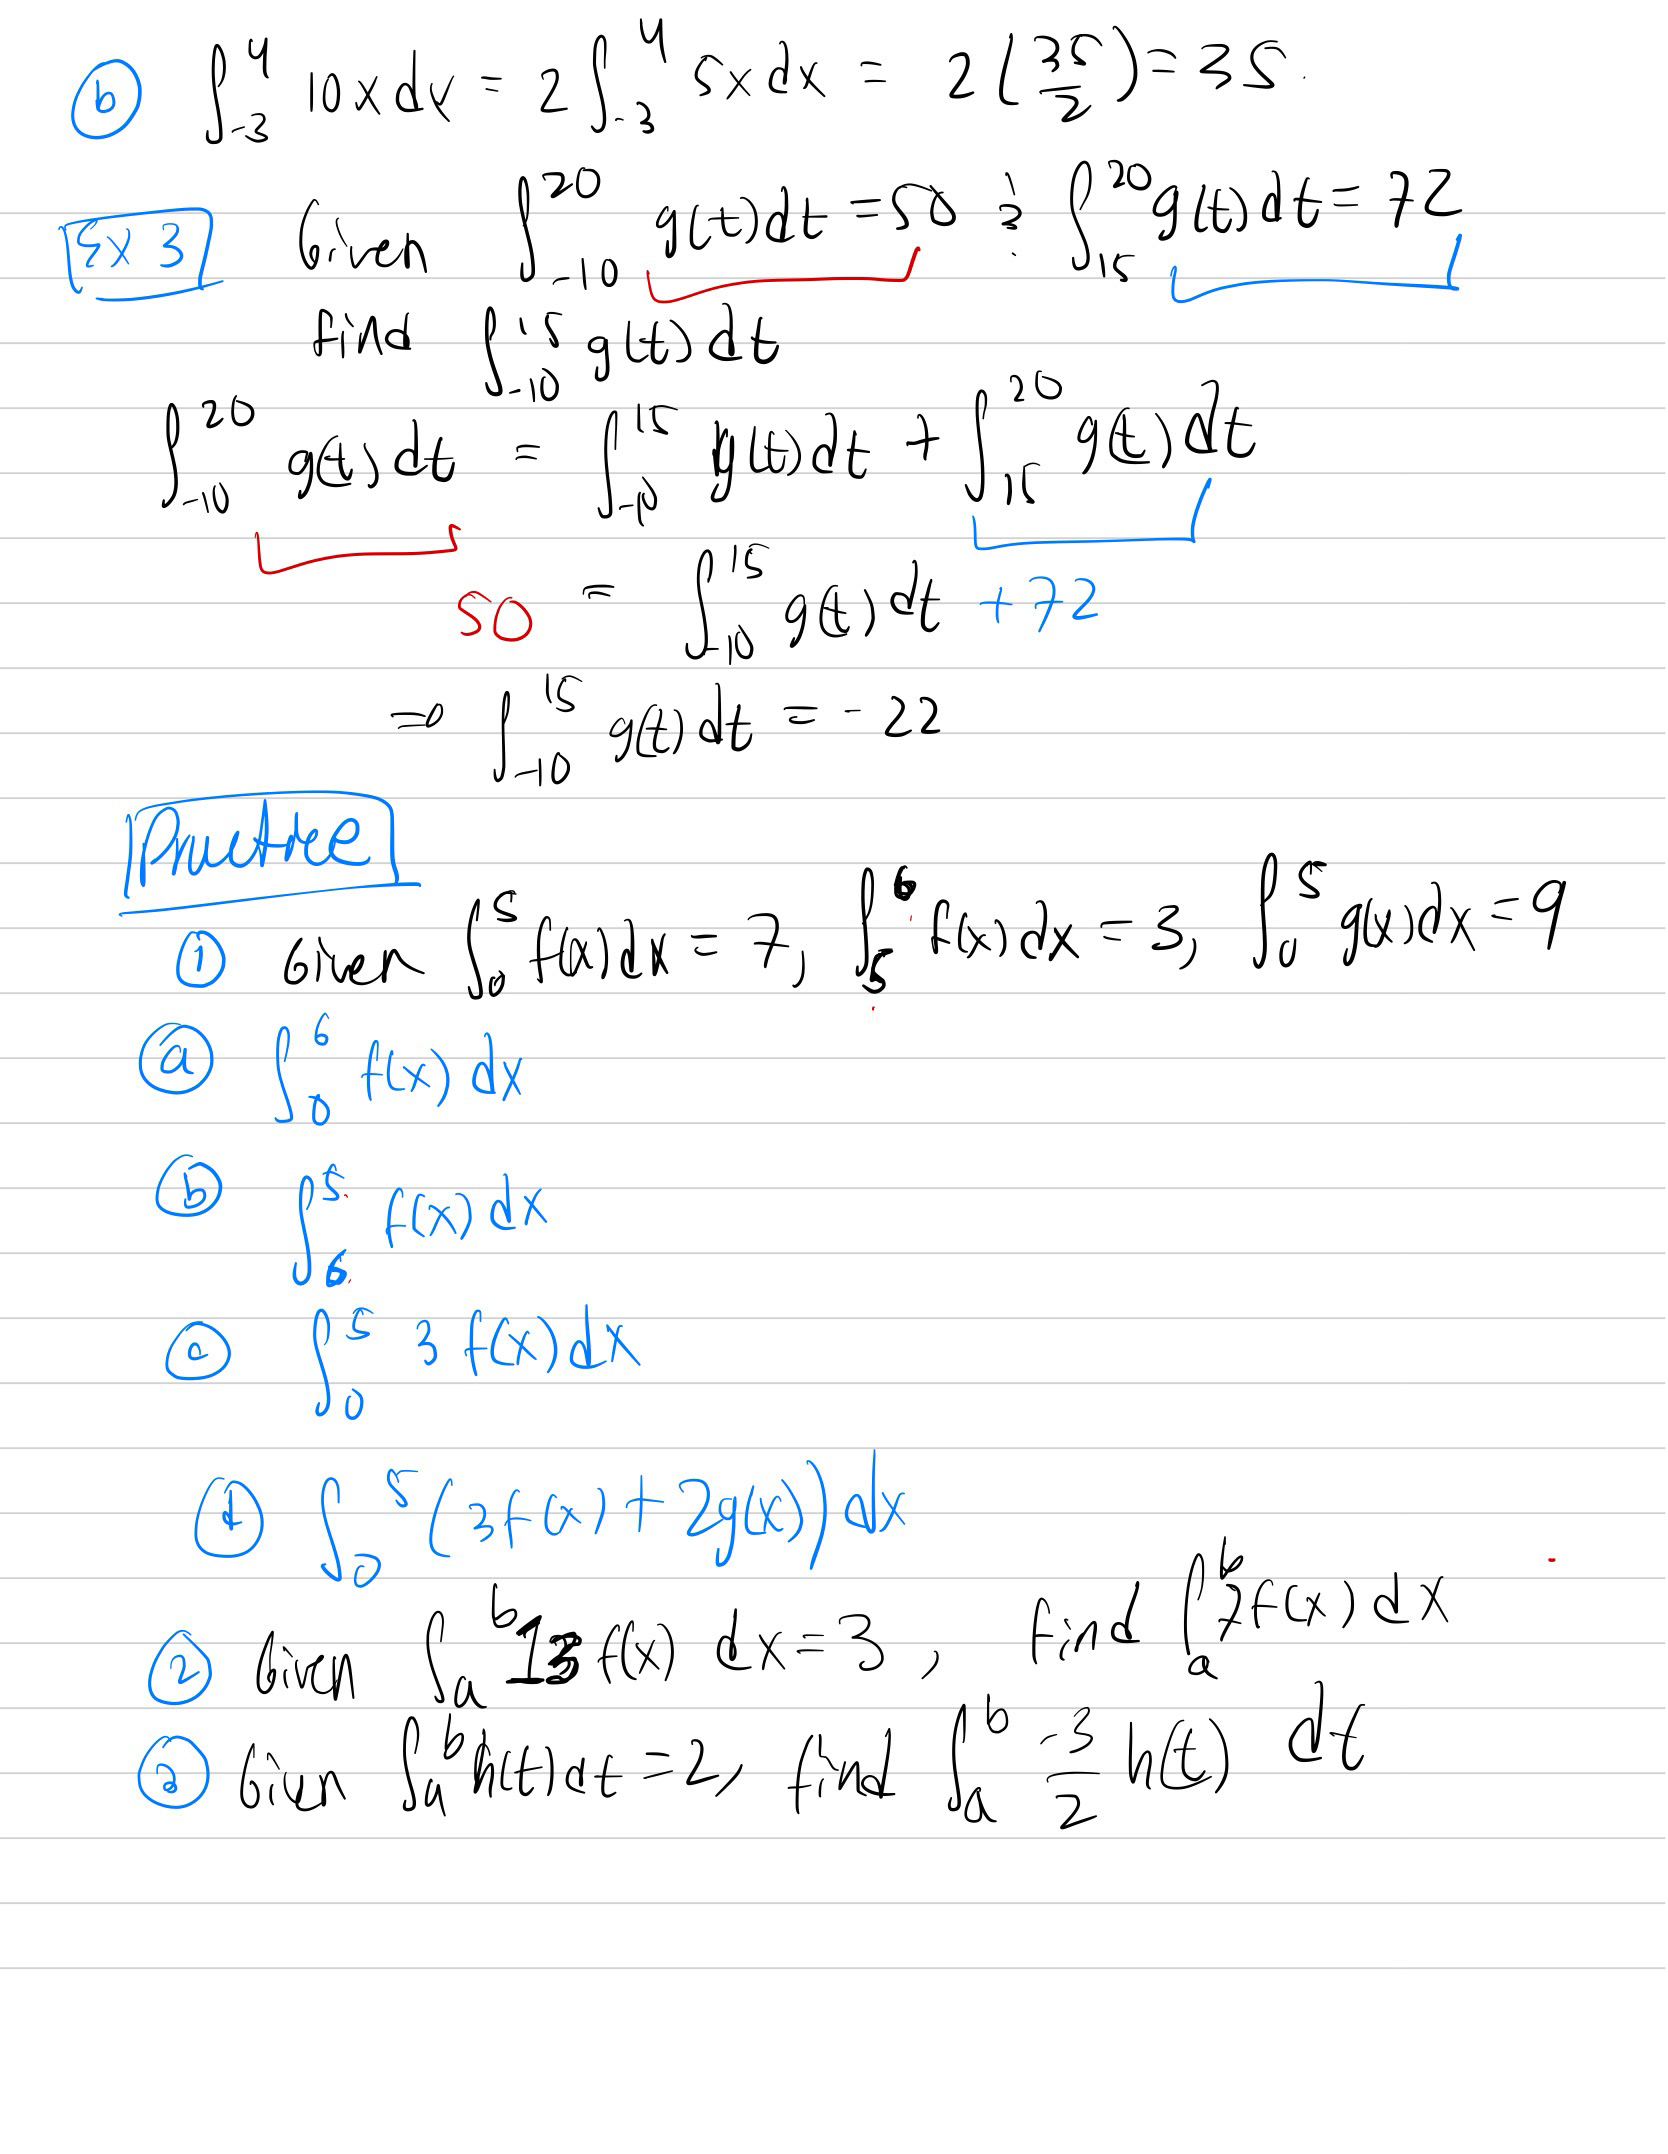 ⓑ ∫_{-3}^{4} 10x dx = 2 ∫_{-3}^{4} 5x dx = 2(35/2) = 35.
Ex 3 Given ∫_{-10}^{20} g(t)dt = 50 & ∫_{15}^{20} g(t)dt = 72
find ∫_{-10}^{15} g(t)dt
∫_{-10}^{20} g(t)dt = ∫_{-10}^{15} g(t)dt + ∫_{15}^{20} g(t)dt
50 = ∫_{-10}^{15} g(t)dt + 72
⇒ ∫_{-10}^{15} g(t)dt = -22
Practice
① Given ∫_{0}^{5} f(x)dx = 7, ∫_{5}^{6} f(x)dx = 3, ∫_{0}^{5} g(x)dx = 9
ⓐ ∫_{0}^{6} f(x) dx
ⓑ ∫_{6}^{5} f(x) dx
ⓒ ∫_{0}^{5} 3 f(x)dx
ⓓ ∫_{0}^{5} (3f(x) + 2g(x)) dx
② Given ∫_{a}^{b} 13 f(x) dx = 3, find ∫_{a}^{b} 7f(x) dx
③ Given ∫_{a}^{b} h(t)dt = 2, find ∫_{a}^{b} -3/2 h(t) dt